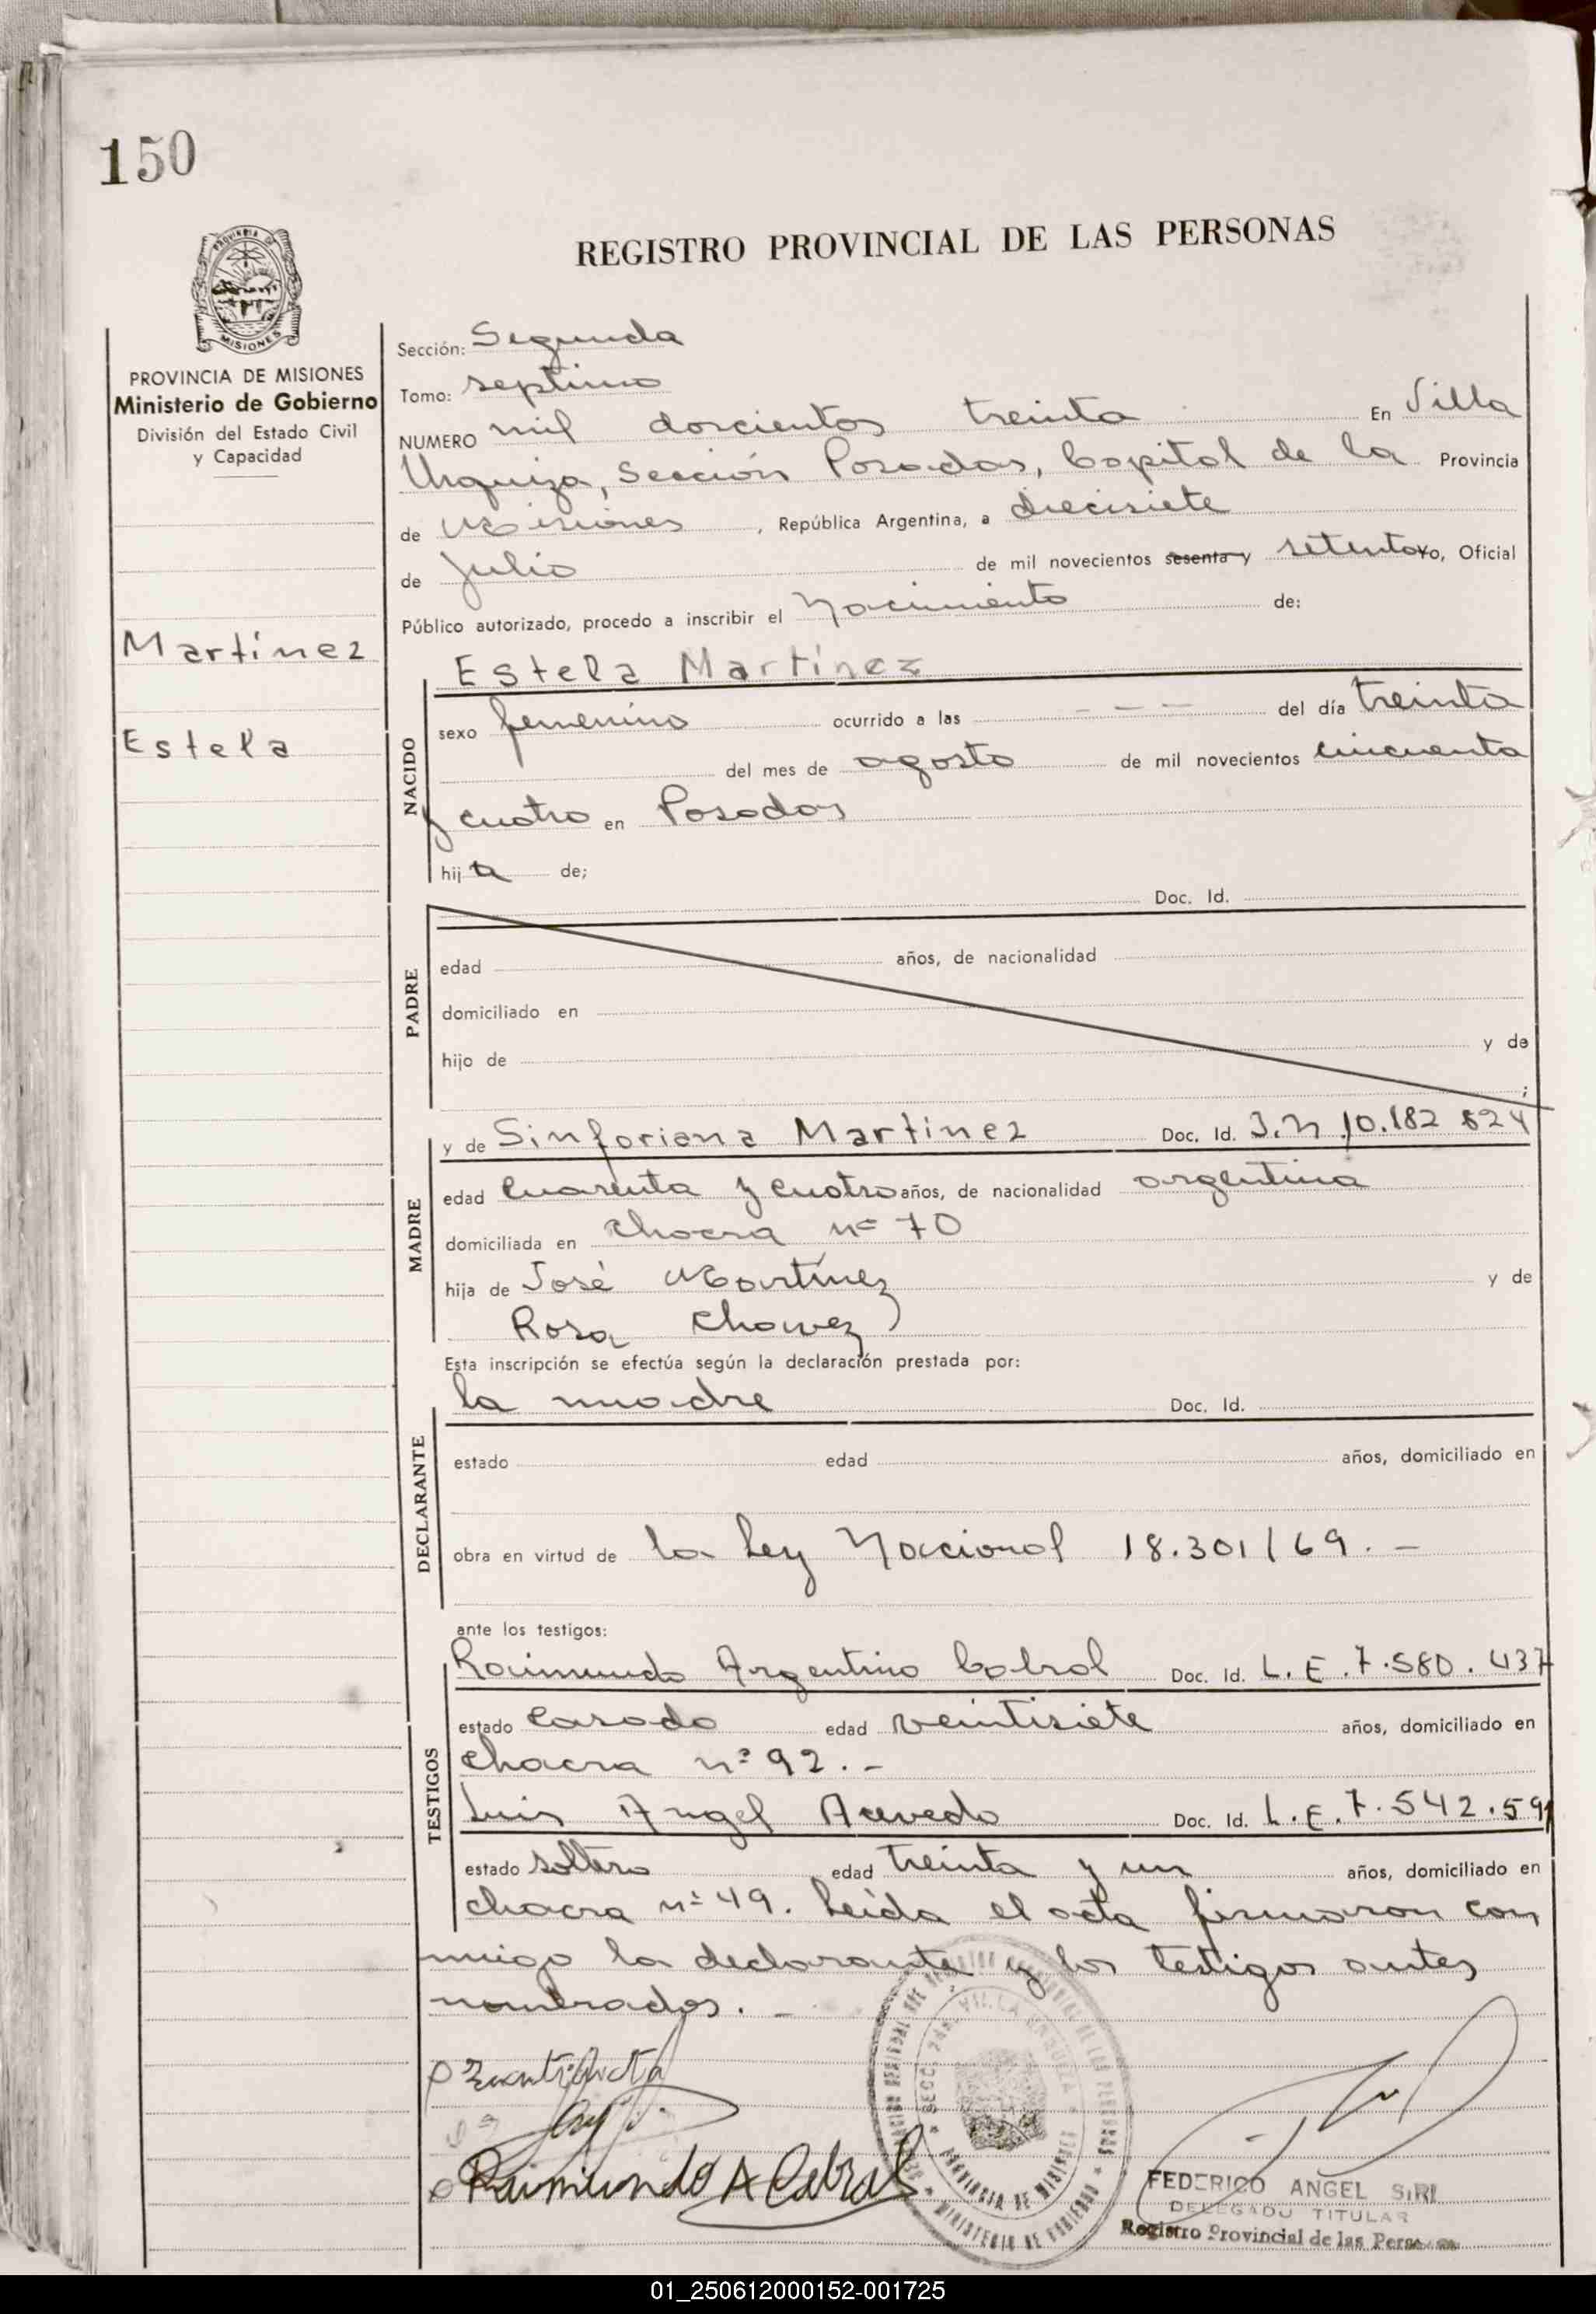 150
REGISTRO PROVINCIAL DE LAS PERSONAS
PROVINCIA DE MISIONES
Ministerio de Gobierno
División del Estado Civil
y Capacidad
Martínez
Estela
Sección: Segunda
Tomo: septimo
NUMERO mil doscientos treinta En Villa
Urquiza, Sección Posadas, Capital de la Provincia
de Misiones, República Argentina, a diecisiete
de Julio de mil novecientos sesenta y setenta yo, Oficial
Público autorizado, procedo a inscribir el Nacimiento de:
Estela Martínez
NACIDO
sexo femenino ocurrido a las - - - del día treinta
del mes de agosto de mil novecientos cincuenta
y cuatro en Posadas
hija de;
Doc. Id.
PADRE
edad años, de nacionalidad
domiciliado en
hijo de y de
;
MADRE
y de Sinforiana Martinez Doc. Id. I.N 10.182 824
edad cuarenta y cuatro años, de nacionalidad argentina
domiciliada en Chacra nº 70
hija de José Martínez y de
Rosa Chavez
Esta inscripción se efectúa según la declaración prestada por:
DECLARANTE
la madre Doc. Id.
estado edad años, domiciliado en
obra en virtud de la Ley Nacional 18.301/69. -
ante los testigos:
TESTIGOS
Raimundo Argentino Cabral Doc. Id. L. E. 7.580.437
estado Casado edad veintisiete años, domiciliado en
chacra nº 92. -
Luis Angel Acevedo Doc. Id. L. E. 7.542.591
estado soltero edad treinta y un años, domiciliado en
chacra nº 49. Leída el acta firmaron con
migo la declarante y los testigos antes
nombrados. -
Raimundo A Cabral
SECC. 2da. VILLA URQUIZA
PROVINCIA DE MISIONES
MINISTERIO DE GOBIERNO
FEDERICO ANGEL SIRI
DELEGADO TITULAR
Registro Provincial de las Personas
01_250612000152-001725